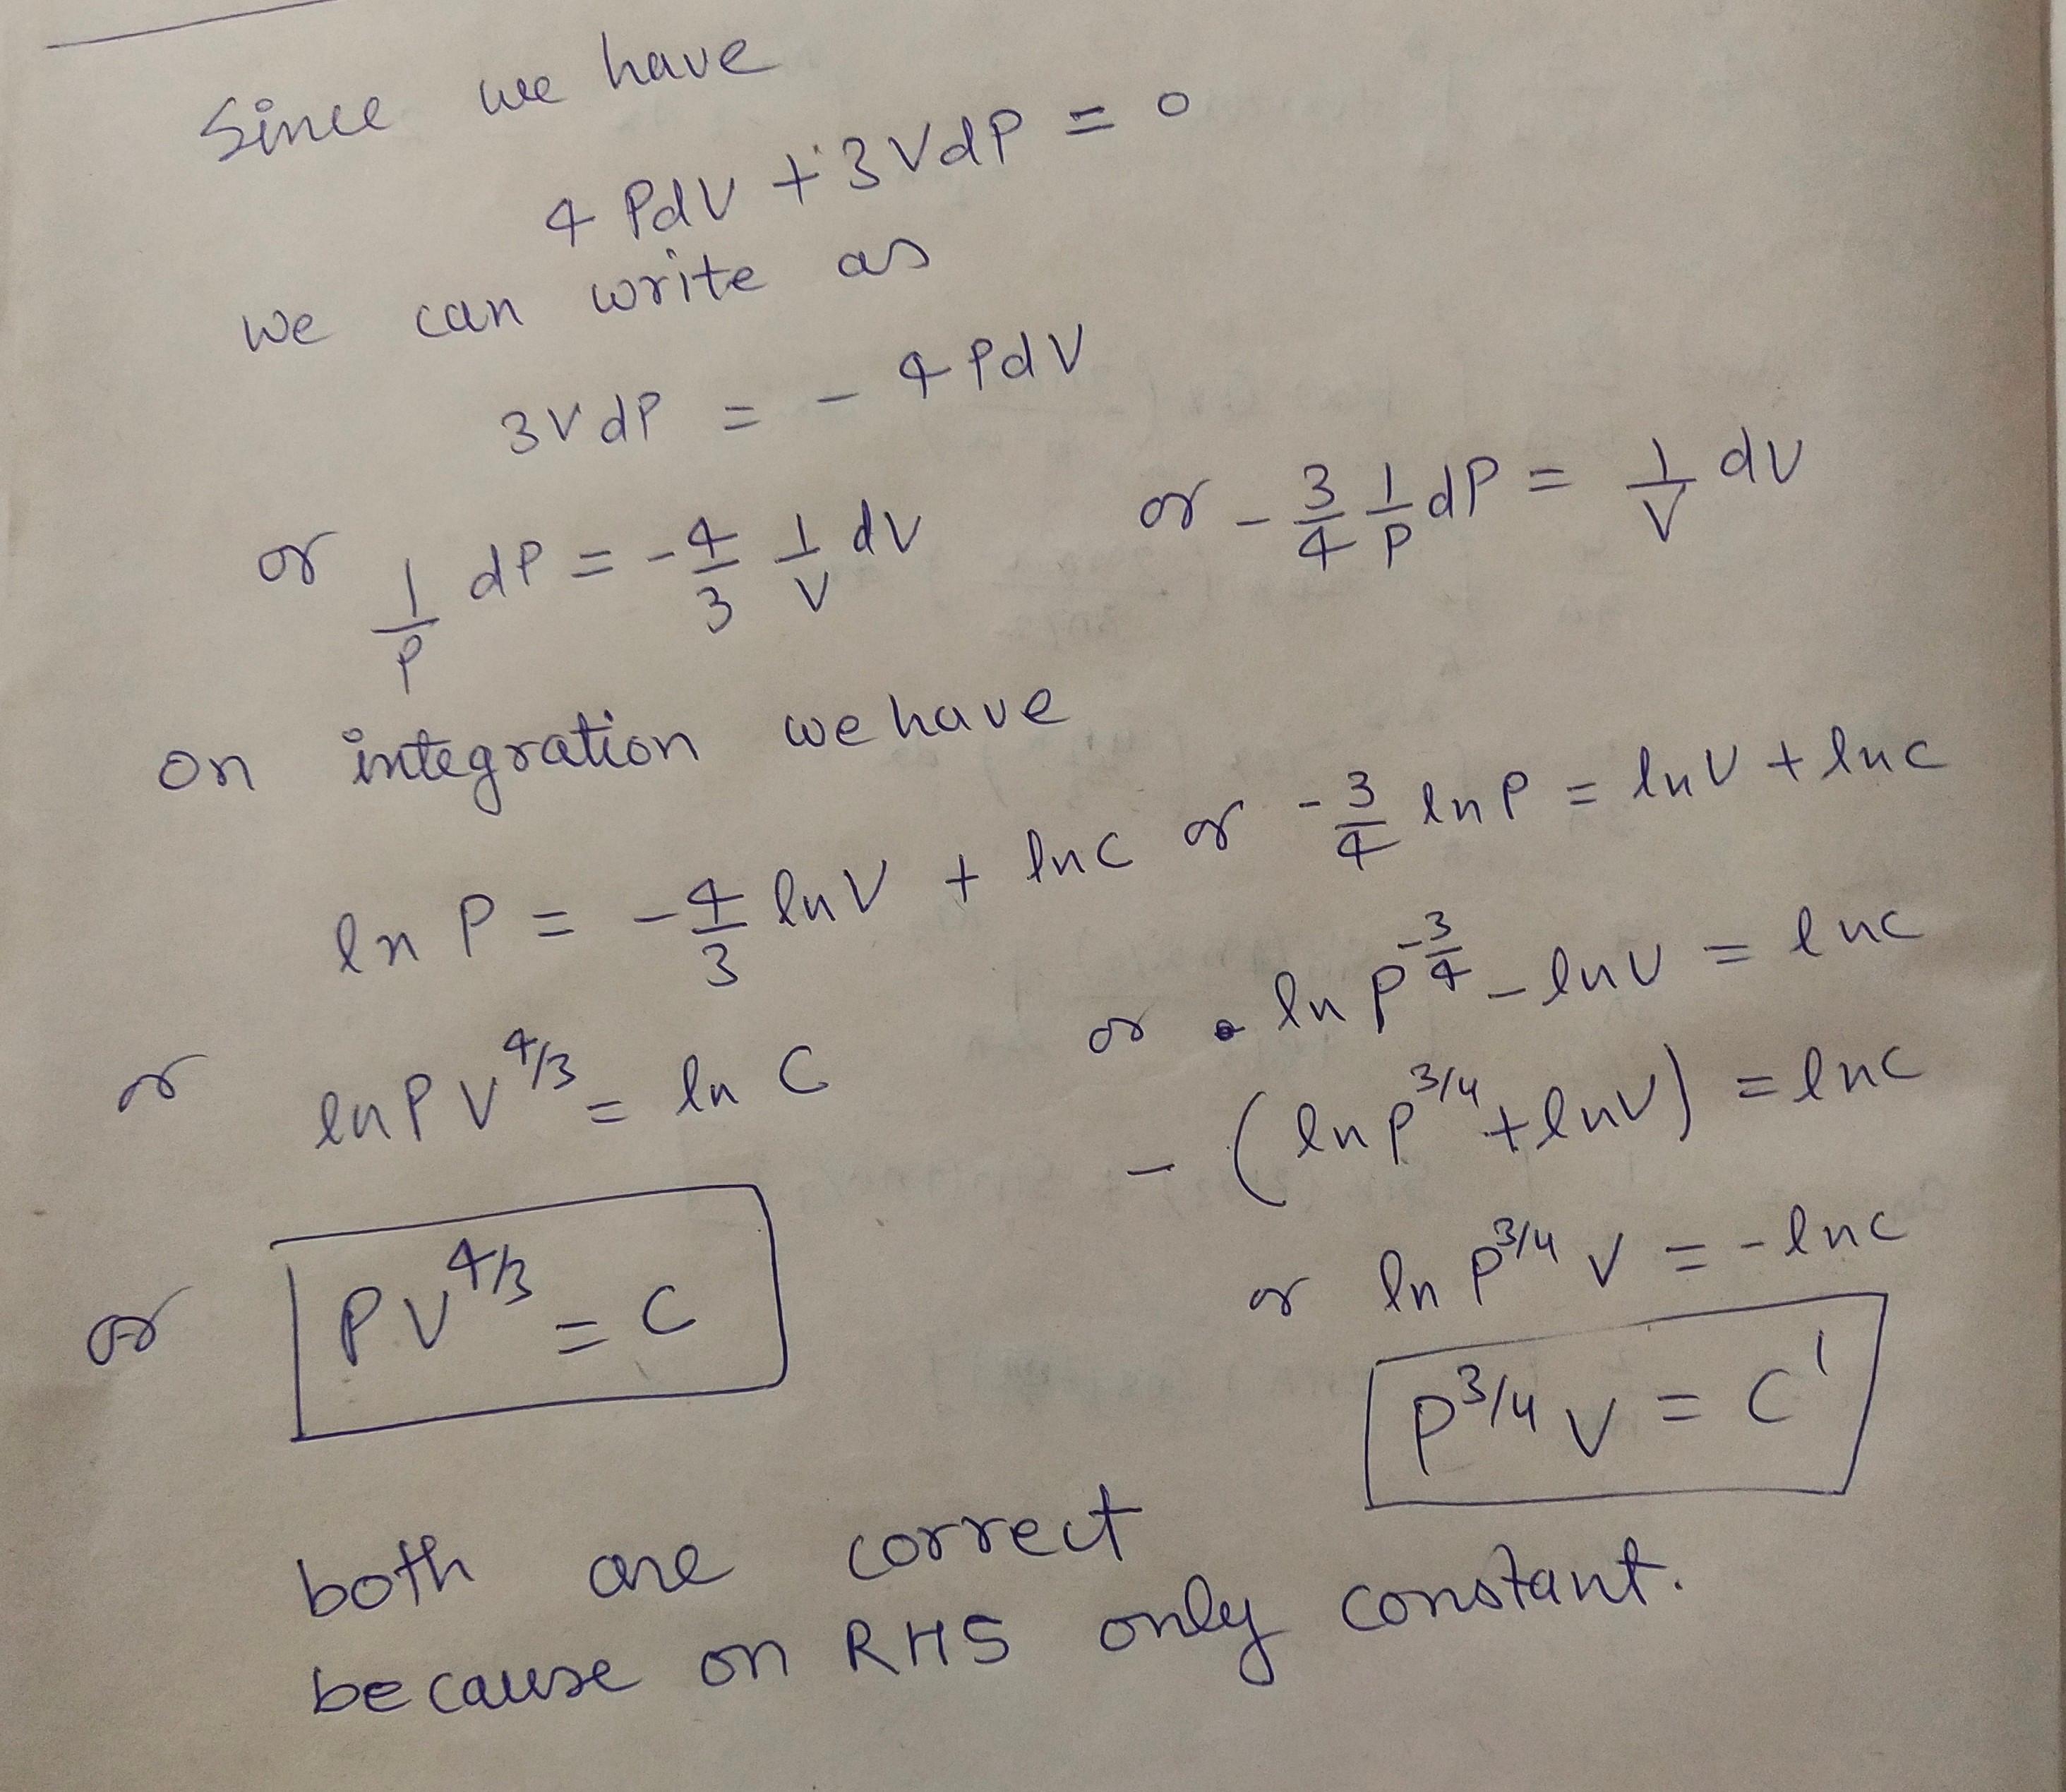 Since we have
4 PdV + 3VdP = 0
we can write as
3VdP = - 4PdV
or 1/P dP = -4/3 1/V dV or -3/4 1/P dP = 1/V dV
on integration we have
ln P = -4/3 lnV + lnc or -3/4 lnP = lnV + lnc
or ln P^-3/4 - lnV = lnc
or lnPV^4/3 = ln C
- (lnP^3/4 + lnV) = lnc
or ln P^3/4 V = -lnc
or PV^4/3 = C
P^3/4 V = C'
both are correct
because on RHS only constant.